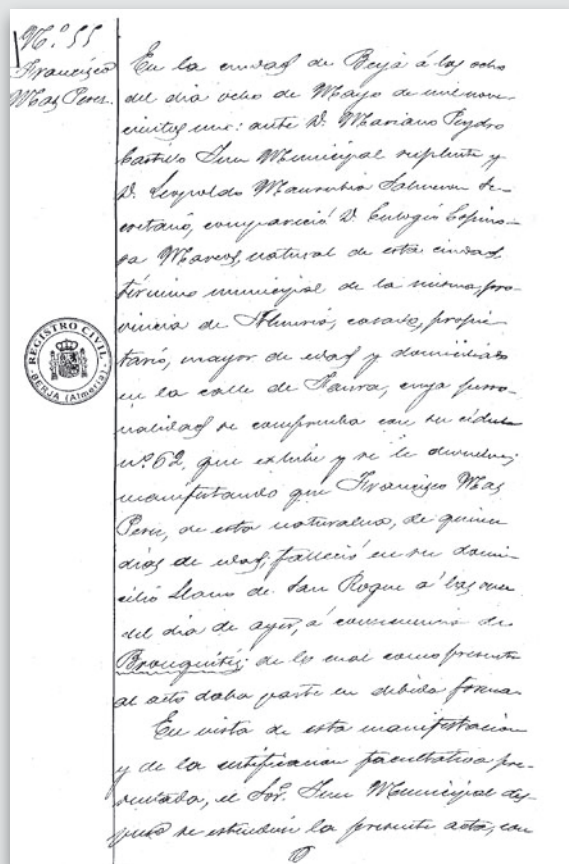 N.º 55
Francisco
Mas Perez.
En la ciudad de Berja á las ocho
del dia ocho de Mayo de mil nove-
cientos uno: ante D. Mariano Peydro
Castillo Juez Municipal suplente y
D. Leopoldo Salmeron Se-
cretario, compareció D. Eulogio Espino-
sa Marcos, natural de esta ciudad,
término municipal de la misma, pro-
vincia de Almeria, casado, propie-
tario, mayor de edad y domiciliado
en la calle de Faura, cuya perso-
nalidad se comprueba con su cédula
nº 62, que exhibe y se le devuelve;
manifestando que Francisco Mas
Perez, de esta naturaleza, de quince
dias de edad, falleció en su domi-
cilio Llano de San Roque á las once
del dia de ayer, á consecuencia de
Bronquitis; de lo cual como presente
al acto daba parte en debida forma.
En vista de esta manifestacion
y de la certificacion facultativa pre-
sentada, el Sor. Juez Municipal dis-
puso se estendiera la presente acta, con
REGISTRO CIVIL
BERJA (Almería)